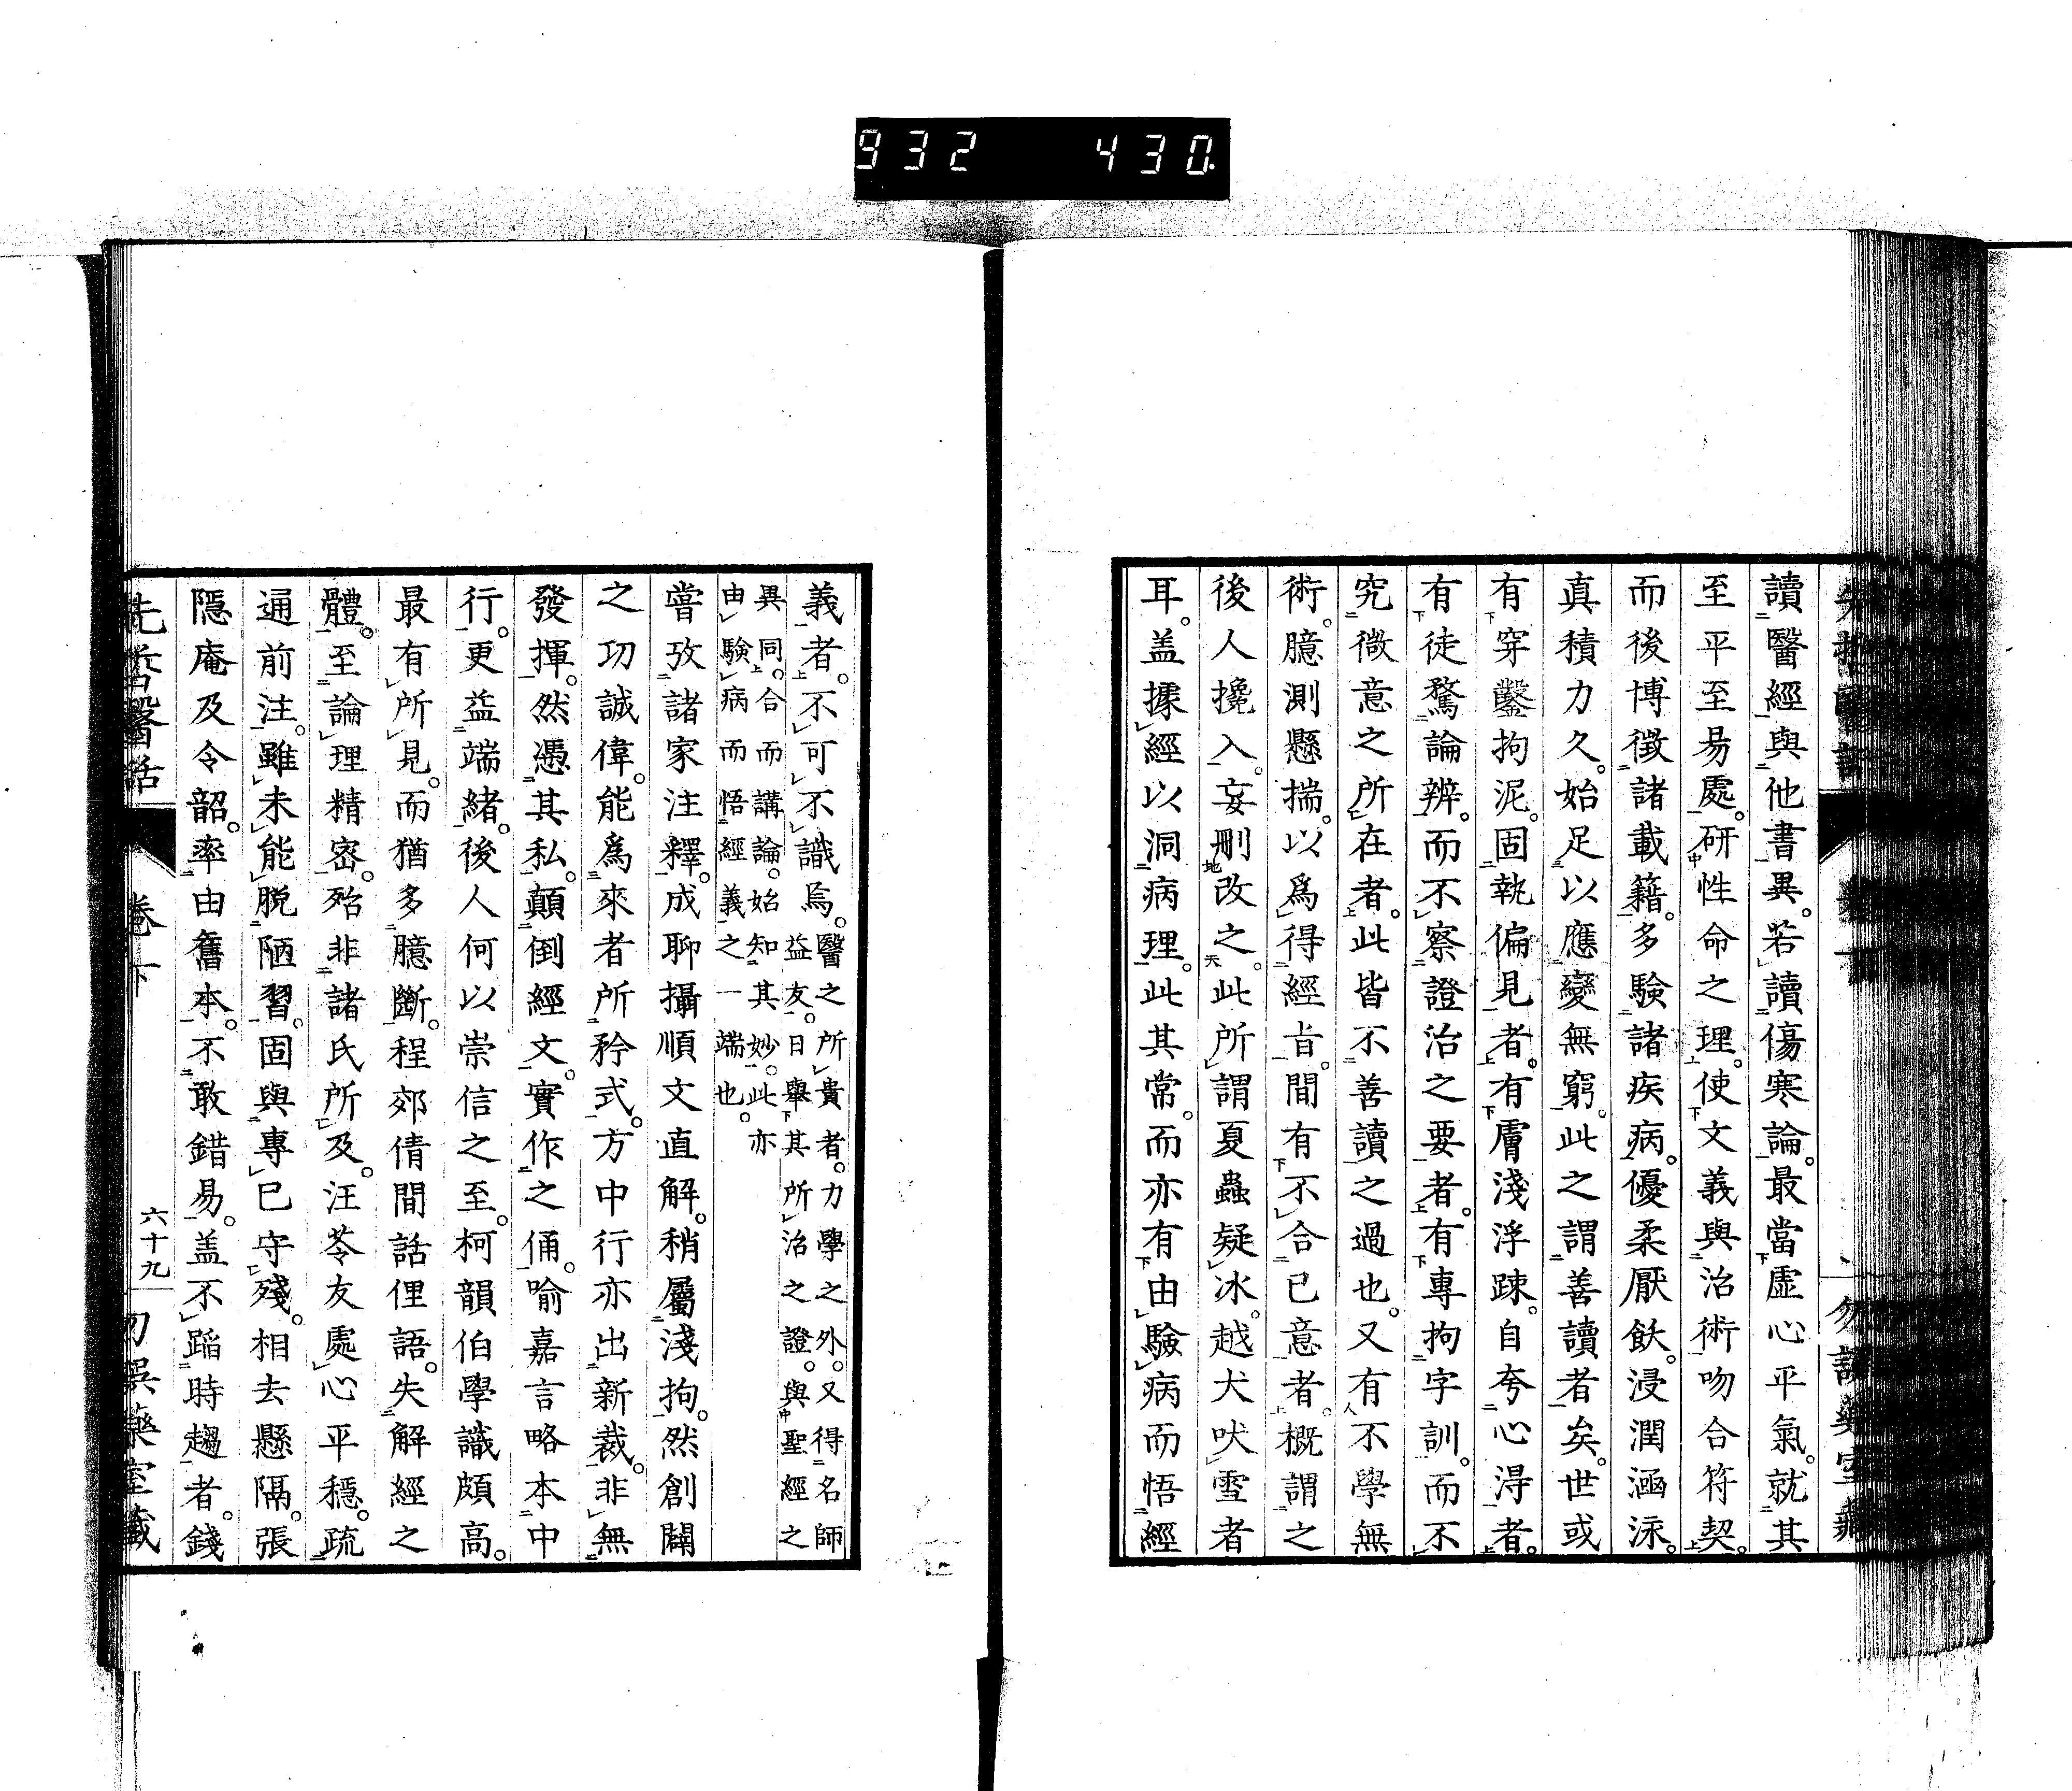 932 430
讀醫經與他書異。若讀傷寒論。最當虛心平氣。就其
至平至易處。研性命之理。使文義與治術吻合符契。
而後博徵諸載籍。多驗諸疾病。優柔厭飫。浸潤涵泳。
真積力久。始足以應變無窮。此之謂善讀者矣。世或
有穿鑿拘泥。固執偏見者。有膚淺浮疎。自夸心得者。
有徒騖論辨。而不察證治之要者。有專拘字訓。而不
究微意之所在者。此皆不善讀之過也。又有不學無
術。臆測懸揣。以爲得經旨。間有不合已意者。概謂之
後人攙入。妄刪改之。此所謂夏蟲疑冰。越犬吠雪者
耳。盖據經以洞病理。此其常。而亦有由驗病而悟經
義者。不可不識焉。醫之所貴者。力學之外。又得名師
益友。日舉其所治之證。與聖經之
異同。合而講論。始知其妙。此亦
由驗病而悟經義之一端也。
嘗攷諸家注釋。成聊攝順文直解。稍屬淺拘。然創闢
之功誠偉。能爲來者所矜式。方中行亦出新裁。非無
發揮。然憑其私。顛倒經文。實作之俑。喻嘉言略本中
行。更益端緒。後人何以崇信之至。柯韻伯學識頗高。
最有所見。而猶多臆斷。程郊倩間話俚語。失解經之
體。至論理精密。殆非諸氏所及。汪苓友處心平穩。疏
通前注。雖未能脱陋習。固與專已守殘。相去懸隔。張
隱庵及令韶。率由舊本。不敢錯易。盖不蹈時趨者。錢
先哲醫話 卷下 六十九 勿誤藥室藏